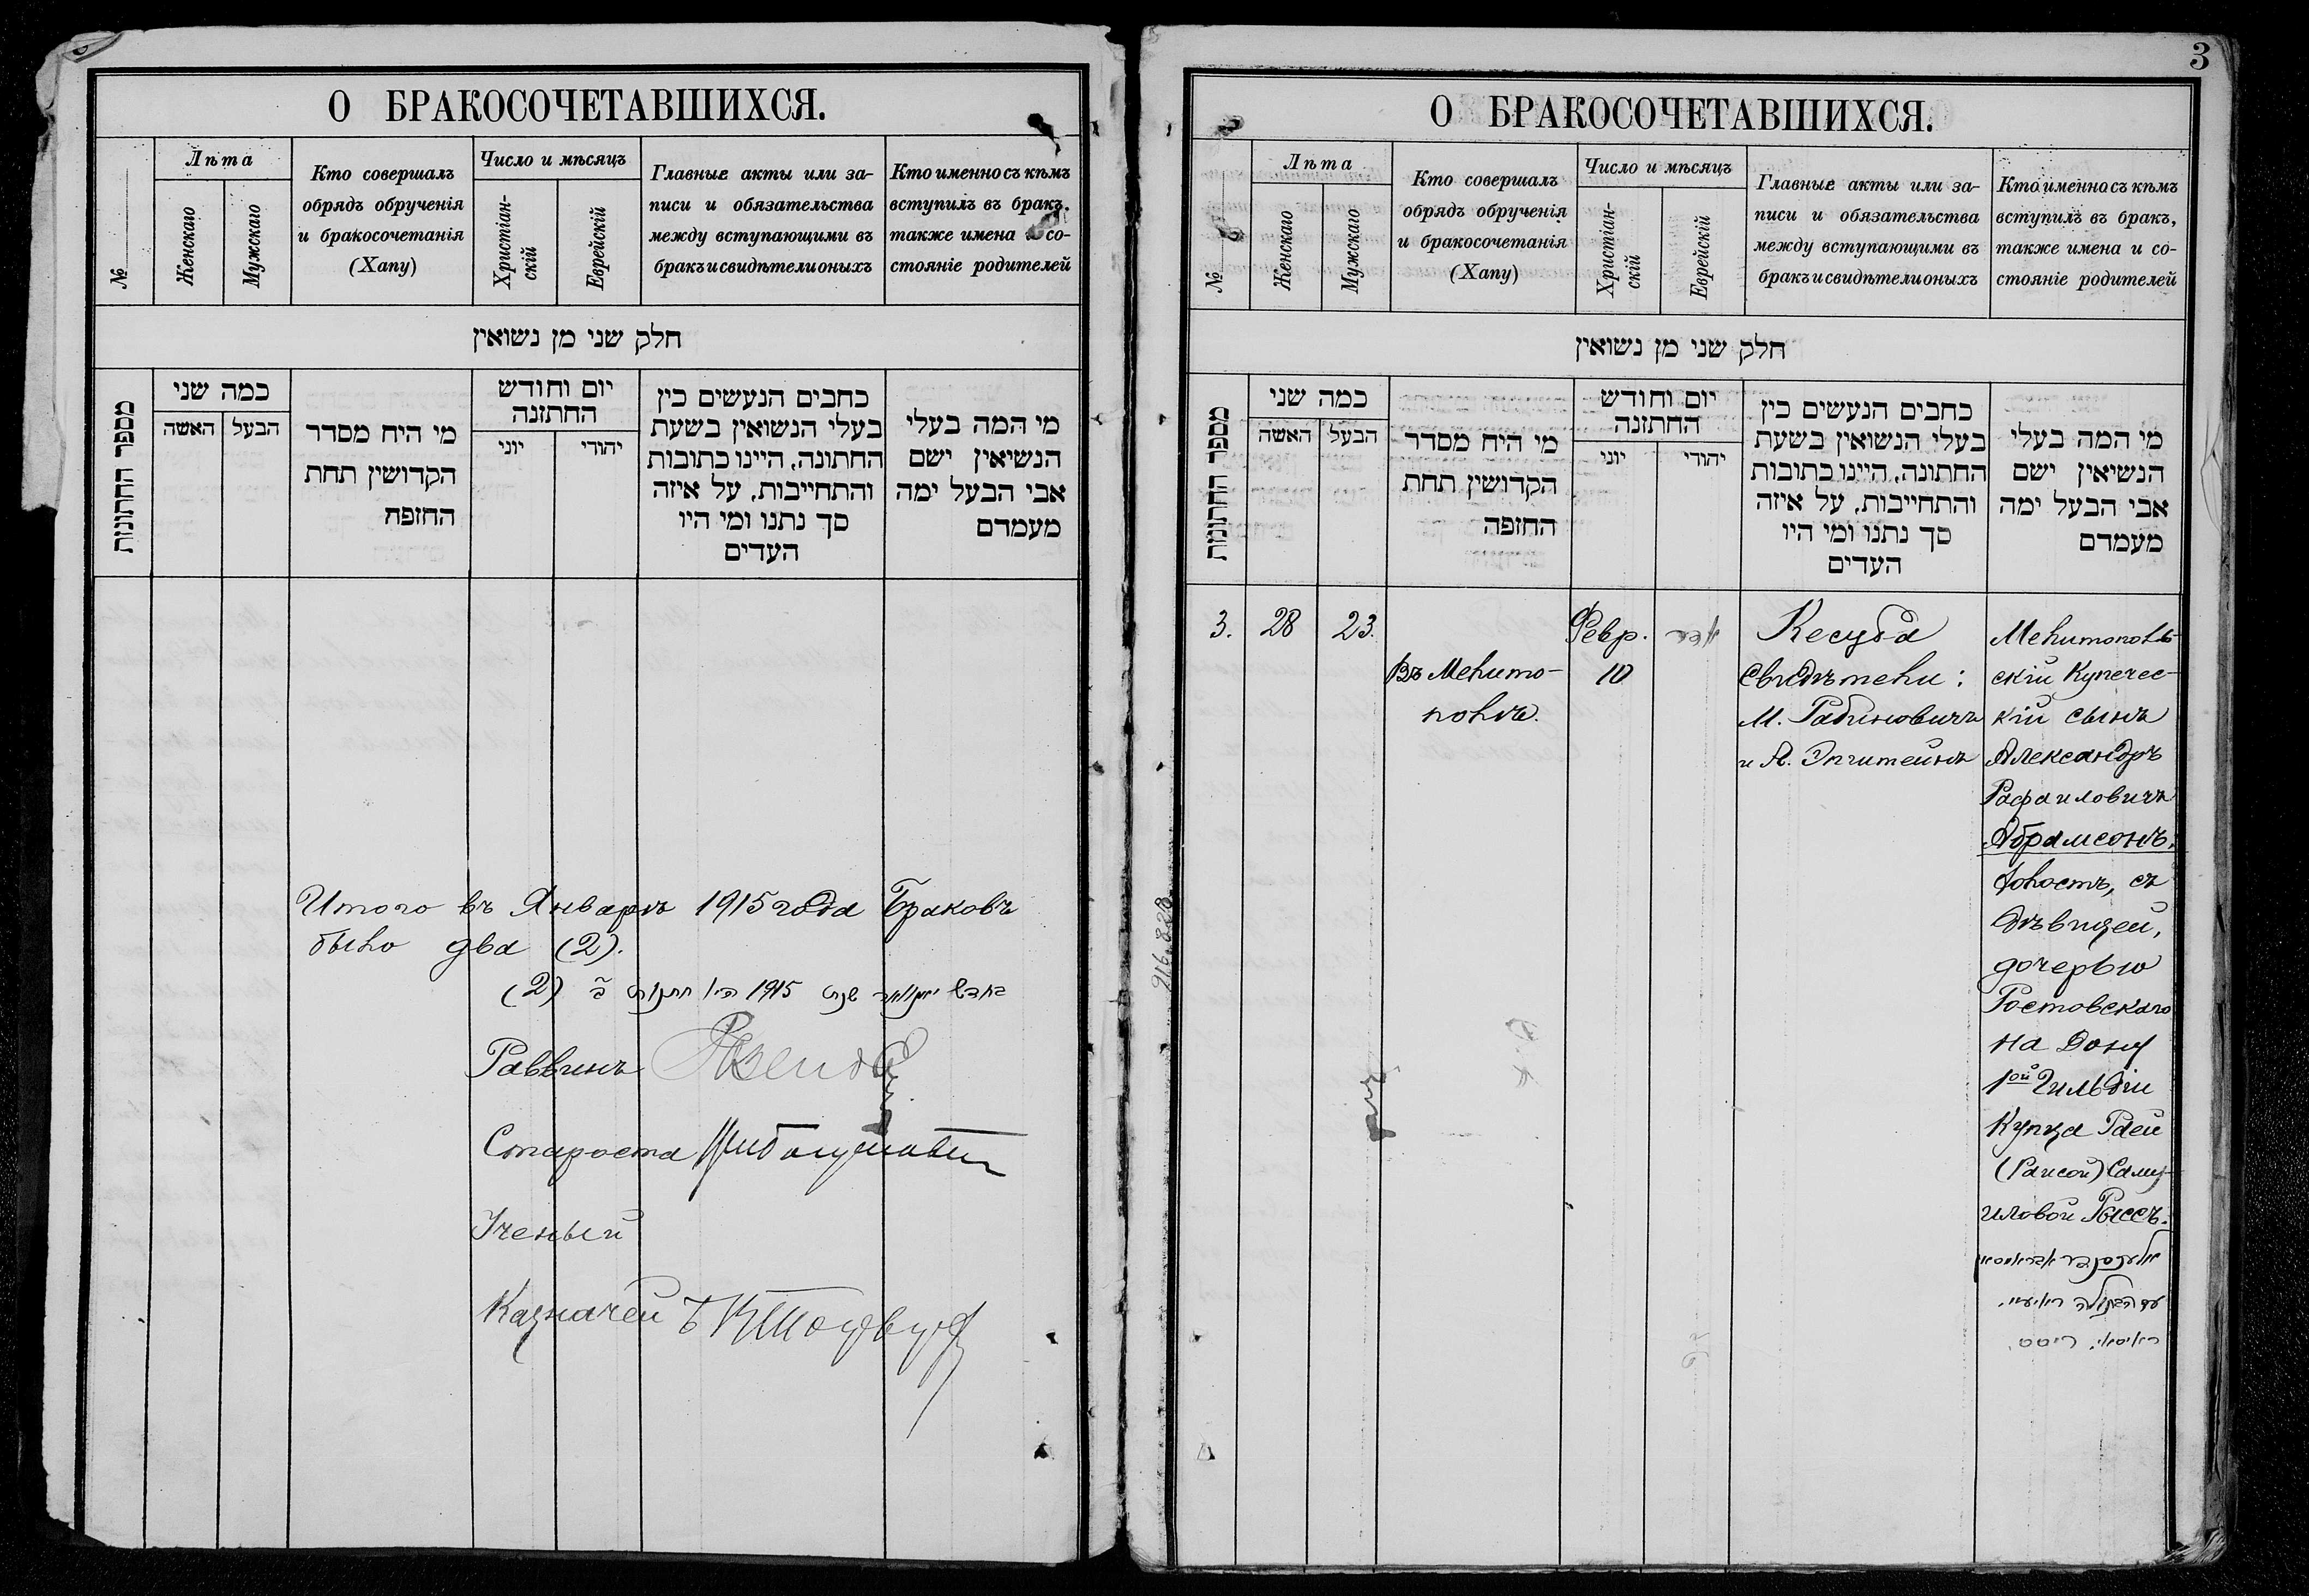 О БРАКОСОЧЕТАВШИХСЯ.
№
Лѣта
Женскаго
Мужскаго
Кто совершалъ
обрядъ обрученія
и бракосочетанія
(Хапу)
Число и мѣсяцъ
Христіан-
скій
Еврейскій
Главные акты или за-
писи и обязательства
между вступающими въ
бракъ и свидѣтели оныхъ
Кто именно съ кѣмъ
вступилъ въ бракъ,
также имена и со-
стояніе родителей
חלק שני מן נשואין
מספר החתונות
כמה שני
האשה
הבעל
מי היח מסדר
הקדושין תחת
החזפח
יום וחודש
החתזנה
יוני
יהודי
כחבים הנעשים כין
בעלי הנשואין בשעת
החתונה, היינו כתובות
והתחייבות, על איזה
סך נתנו ומי היו
העדים
מי המה בעלי
הנשיאין ישם
אבי הבעל ימה
מעמדם
Итого въ Январѣ 1915 года Браковъ
было два (2).
1915
(2)
Раввинъ
Староста
Ученый
Казначей
3
О БРАКОСОЧЕТАВШИХСЯ.
№
Лѣта
Женскаго
Мужскаго
Кто совершалъ
обрядъ обрученія
и бракосочетанія
(Хапу)
Число и мѣсяцъ
Христіан-
скій
Еврейскій
Главные акты или за-
писи и обязательства
между вступающими въ
бракъ и свидѣтели оныхъ
Кто именно съ кѣмъ
вступилъ въ бракъ,
также имена и со-
стояніе родителей
חלק שני מן נשואין
מספר החתונות
כמה שני
האשה
הבעל
מי היח מסדר
הקדושין תחת
החזפה
יום וחודש
החתזנה
יוני
יהודי
כחבים הנעשים כין
בעלי הנשואין בשעת
החתונה, היינו כתובות
והתחייבות, על איזה
סך נתנו ומי היו
העדים
מי המה בעלי
הנשיאין ישם
אבי הבעל ימה
מעמדם
3.
28
23.
Въ Мелито-
полѣ.
Февр.
10
Кесуба
Свидѣтели:
М. Рабиновичъ
и Я. Эпштейнъ
Мелитополь-
скій Купечес-
кій сынъ
Александръ
Рафаиловичъ
Абрамсонъ,
холостъ, съ
дѣвицей,
дочерью
Ростовскаго
на Дону
1ой Гильдіи
Купца Раей
(Раисой) Саму-
иловой Рыссъ.
916.828